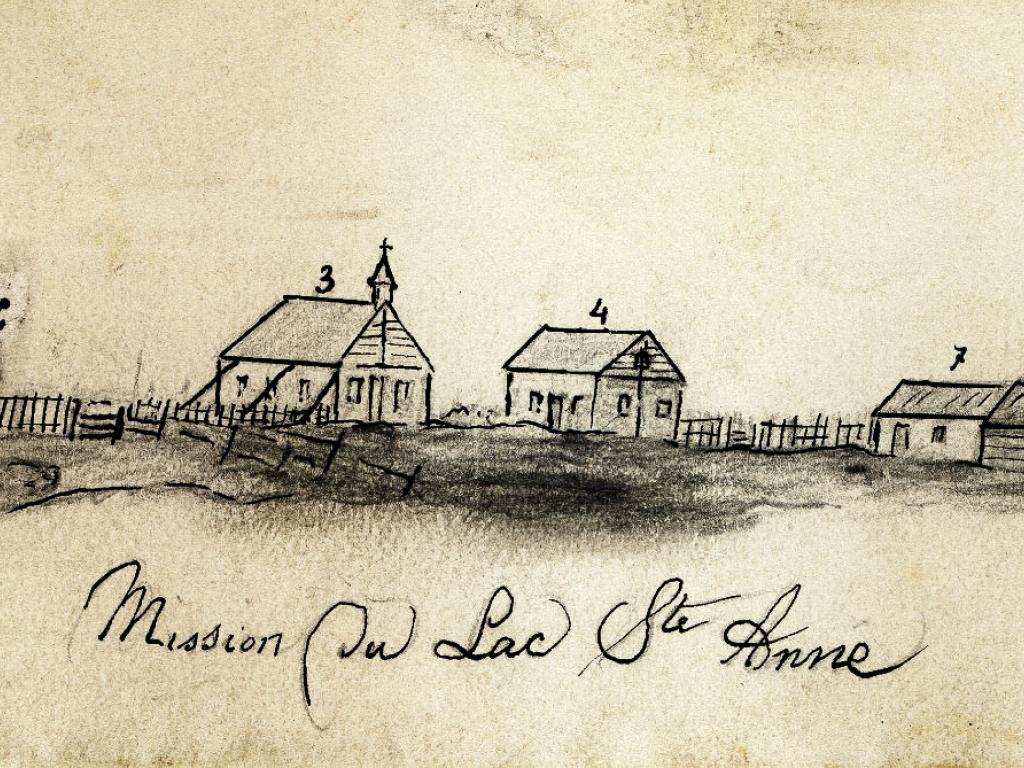 3
4
7
Mission Du Lac Ste Anne